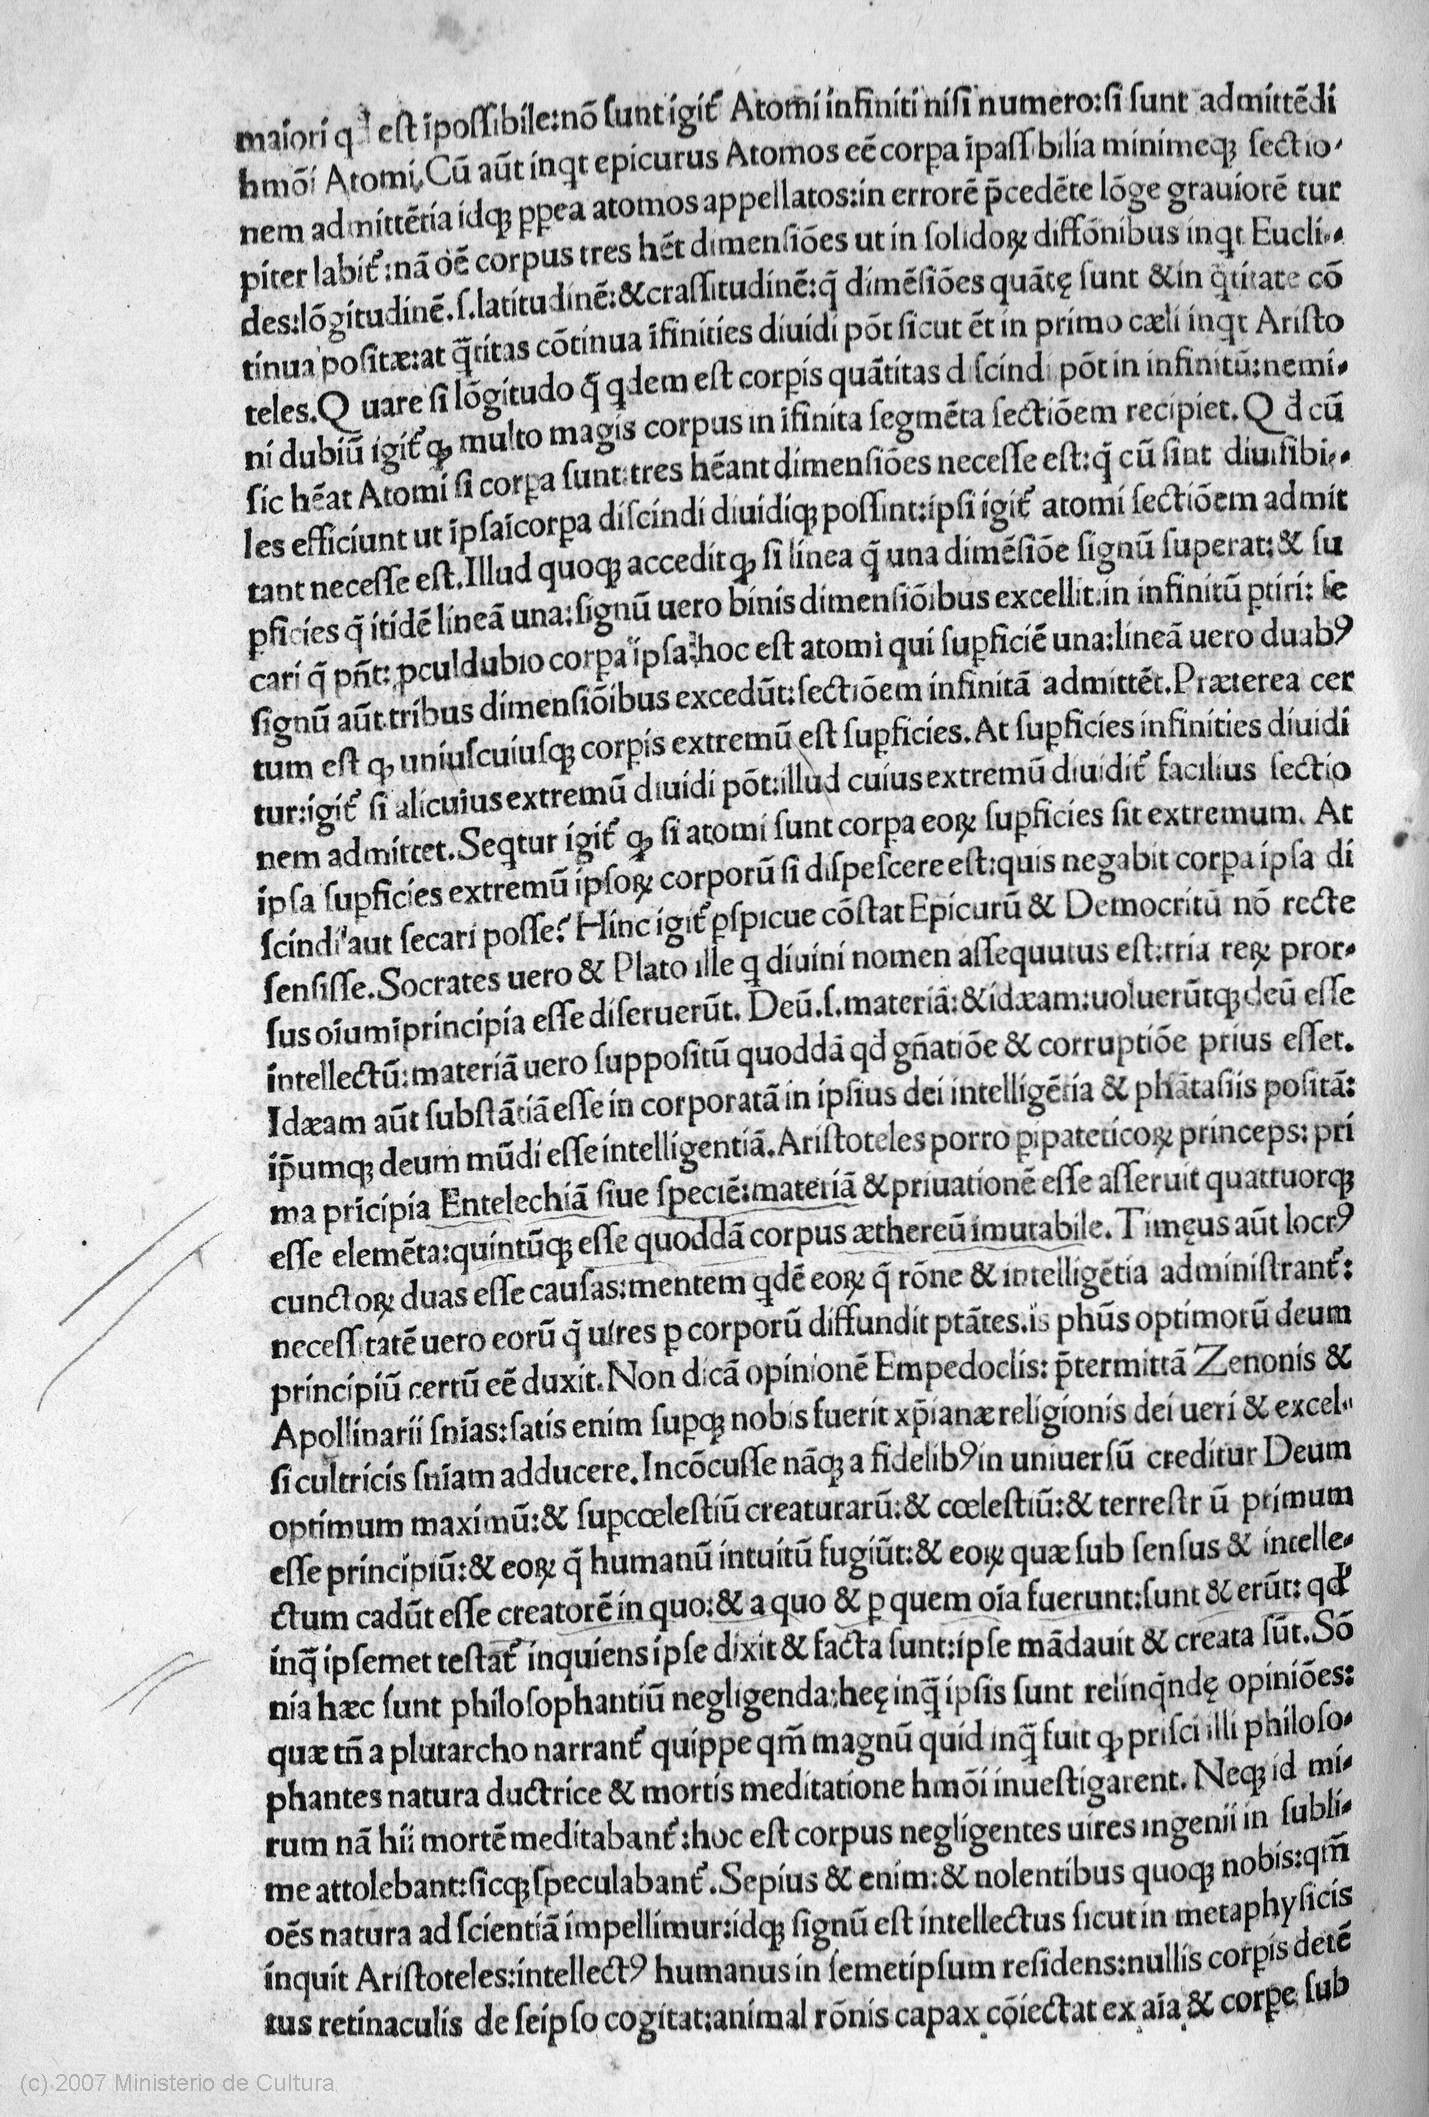 maiori qd est īpossibile:nō sunt igit᷑ Atomi infiniti nisi numero:si sunt admittēdi
hmōi Atomi. Cū aūt inqt epicurus Atomos eē corꝑa īpassibilia minimeqꝫ sectio-
nem admittētia idqꝫ ꝓpea atomos appellatos:in errorē p̄cedēte lōge grauiorē tur
piter labit᷑:nā oē corpus tres hēt dimensiōes ut in solidoꝝ diffōnibus inqt Eucli-
des:lōgitudinē.s.latitudinē:&crassitudinē:q̄ dimēsiōes quātę sunt &in q̄titate cō
tinua positæ:at q̄titas cōtinua īfinities diuidi pōt sicut ēt in primo cæli inqt Aristo
teles.Quare si lōgitudo q̄ qdem est corꝑis quātitas discindi pōt in infinitū:nemi-
ni dubiū igit᷑ ꝙ multo magis corpus in īfinita segmēta sectiōem recipiet.Qd cū
sic hēat Atomi si corꝑa sunt:tres hēant dimensiōes necesse est:q̄ cū sint diuisibi-
les efficiunt ut ipsaicorꝑa discindi diuidiqꝫ possint:ipsi igit᷑ atomi sectiōem admit
tant necesse est.Illud quoqꝫ accedit ꝙ si linea q̄ una dimēsiōe signū superat:& su
ꝑficies q̄ itidē lineā una:signū uero binis dimensiōibus excellit.in infinitū ꝑtiri: se
cari q̄ pn̄t:ꝓculdubio corꝑa ipsa:hoc est atomi qui suꝑficiē una:lineā uero duabꝰ
signū aūt tribus dimensiōibus excedūt:sectiōem infinitā admittēt.Præterea cer
tum est ꝙ uniuscuiusqꝫ corꝑis extremū est suꝑficies.At suꝑficies infinities diuidi
tur:igit᷑ si alicuius extremū diuidi pōt:illud cuius extremū diuidit᷑ facilius sectio
nem admittet.Seqtur igit᷑ ꝙ si atomi sunt corꝑa eoꝝ suꝑficies sit extremum. At
ipsa suꝑficies extremū ipsoꝝ corporū si dispescere est:quis negabit corꝑa ipsa di
scindi aut secari posse? Hinc igit᷑ ꝑspicue cōstat Epicurū & Democritū nō recte
sensisse.Socrates uero & Plato ille q diuini nomen assequutus est:tria reꝝ pror-
sus oiumīprincipia esse diseruerūt. Deū.s.materiā:&idæam:uoluerūtqꝫ deū esse
intellectū:materiā uero suppositū quoddā qd gn̄atiōe & corruptiōe prius esset.
Idæam aūt substātiā esse in corporatā in ipsius dei intelligētia & phātasiis positā:
ip̄umqꝫ deum mūdi esse intelligentiā.Aristoteles porro ꝑipateticoꝝ princeps: pri
ma pricipia Entelechiā siue speciē:materiā &priuationē esse asseruit quattuorqꝫ
esse elemēta:quintūqꝫ esse quoddā corpus æthereū imutabile.Timęus aūt locrꝰ
cunctoꝝ duas esse causas:mentem qdē eoꝝ q̄ rōne & intelligētia administrant᷑:
necessitatē uero eorū q̄ uires ꝑ corporū diffundit ptātes.is phūs optimorū deum
principiū certū eē duxit.Non dicā opinionē Empedoclis: p̄termittā Zenonis &
Apollinarii snīas:satis enim suꝑqꝫ nobis fuerit xp̄ianæ religionis dei ueri & excel-
si cultricis snīam adducere.Incōcusse nāqꝫ a fidelibꝰin uniuersū creditur Deum
optimum maximū:& suꝑcœlestiū creaturarū:& cœlestiū:& terrestr ū primum
esse principiū:& eoꝝ q̄ humanū intuitū fugiūt:& eoꝝ quæ sub sensus & intelle-
ctum cadūt esse creatorē in quo:& a quo & ꝑ quem oīa fuerunt:sunt & erūt: qd
inq̄ ipsemet testat᷑ inquiens ipse dixit & facta sunt:ipse mādauit & creata sūt.Sō
nia hæc sunt philosophantiū negligenda:heę inq̄ ipsis sunt relinq̄ndę opiniōes:
quæ tn̄ a plutarcho narrant᷑ quippe qm̄ magnū quid inq̄ fuit ꝙ prisci illi philoso-
phantes natura ductrice & mortis meditatione hmōi inuestigarent. Neqꝫ id mi-
rum nā hii mortē meditabant᷑:hoc est corpus negligentes uires ingenii in subli-
me attolebant:sicqꝫ speculabant᷑.Sepius & enim:& nolentibus quoqꝫ nobis:qm̄
oēs natura ad scientiā impellimur:idqꝫ signū est intellectus sicut in metaphysicis
inquit Aristoteles:intellectꝰ humanus in semetipsum residens:nullis corꝑis detē
tus retinaculis de seipso cogitat:animal rōnis capax cōiectat ex aīa & corꝑe sub
(c) 2007 Ministerio de Cultura